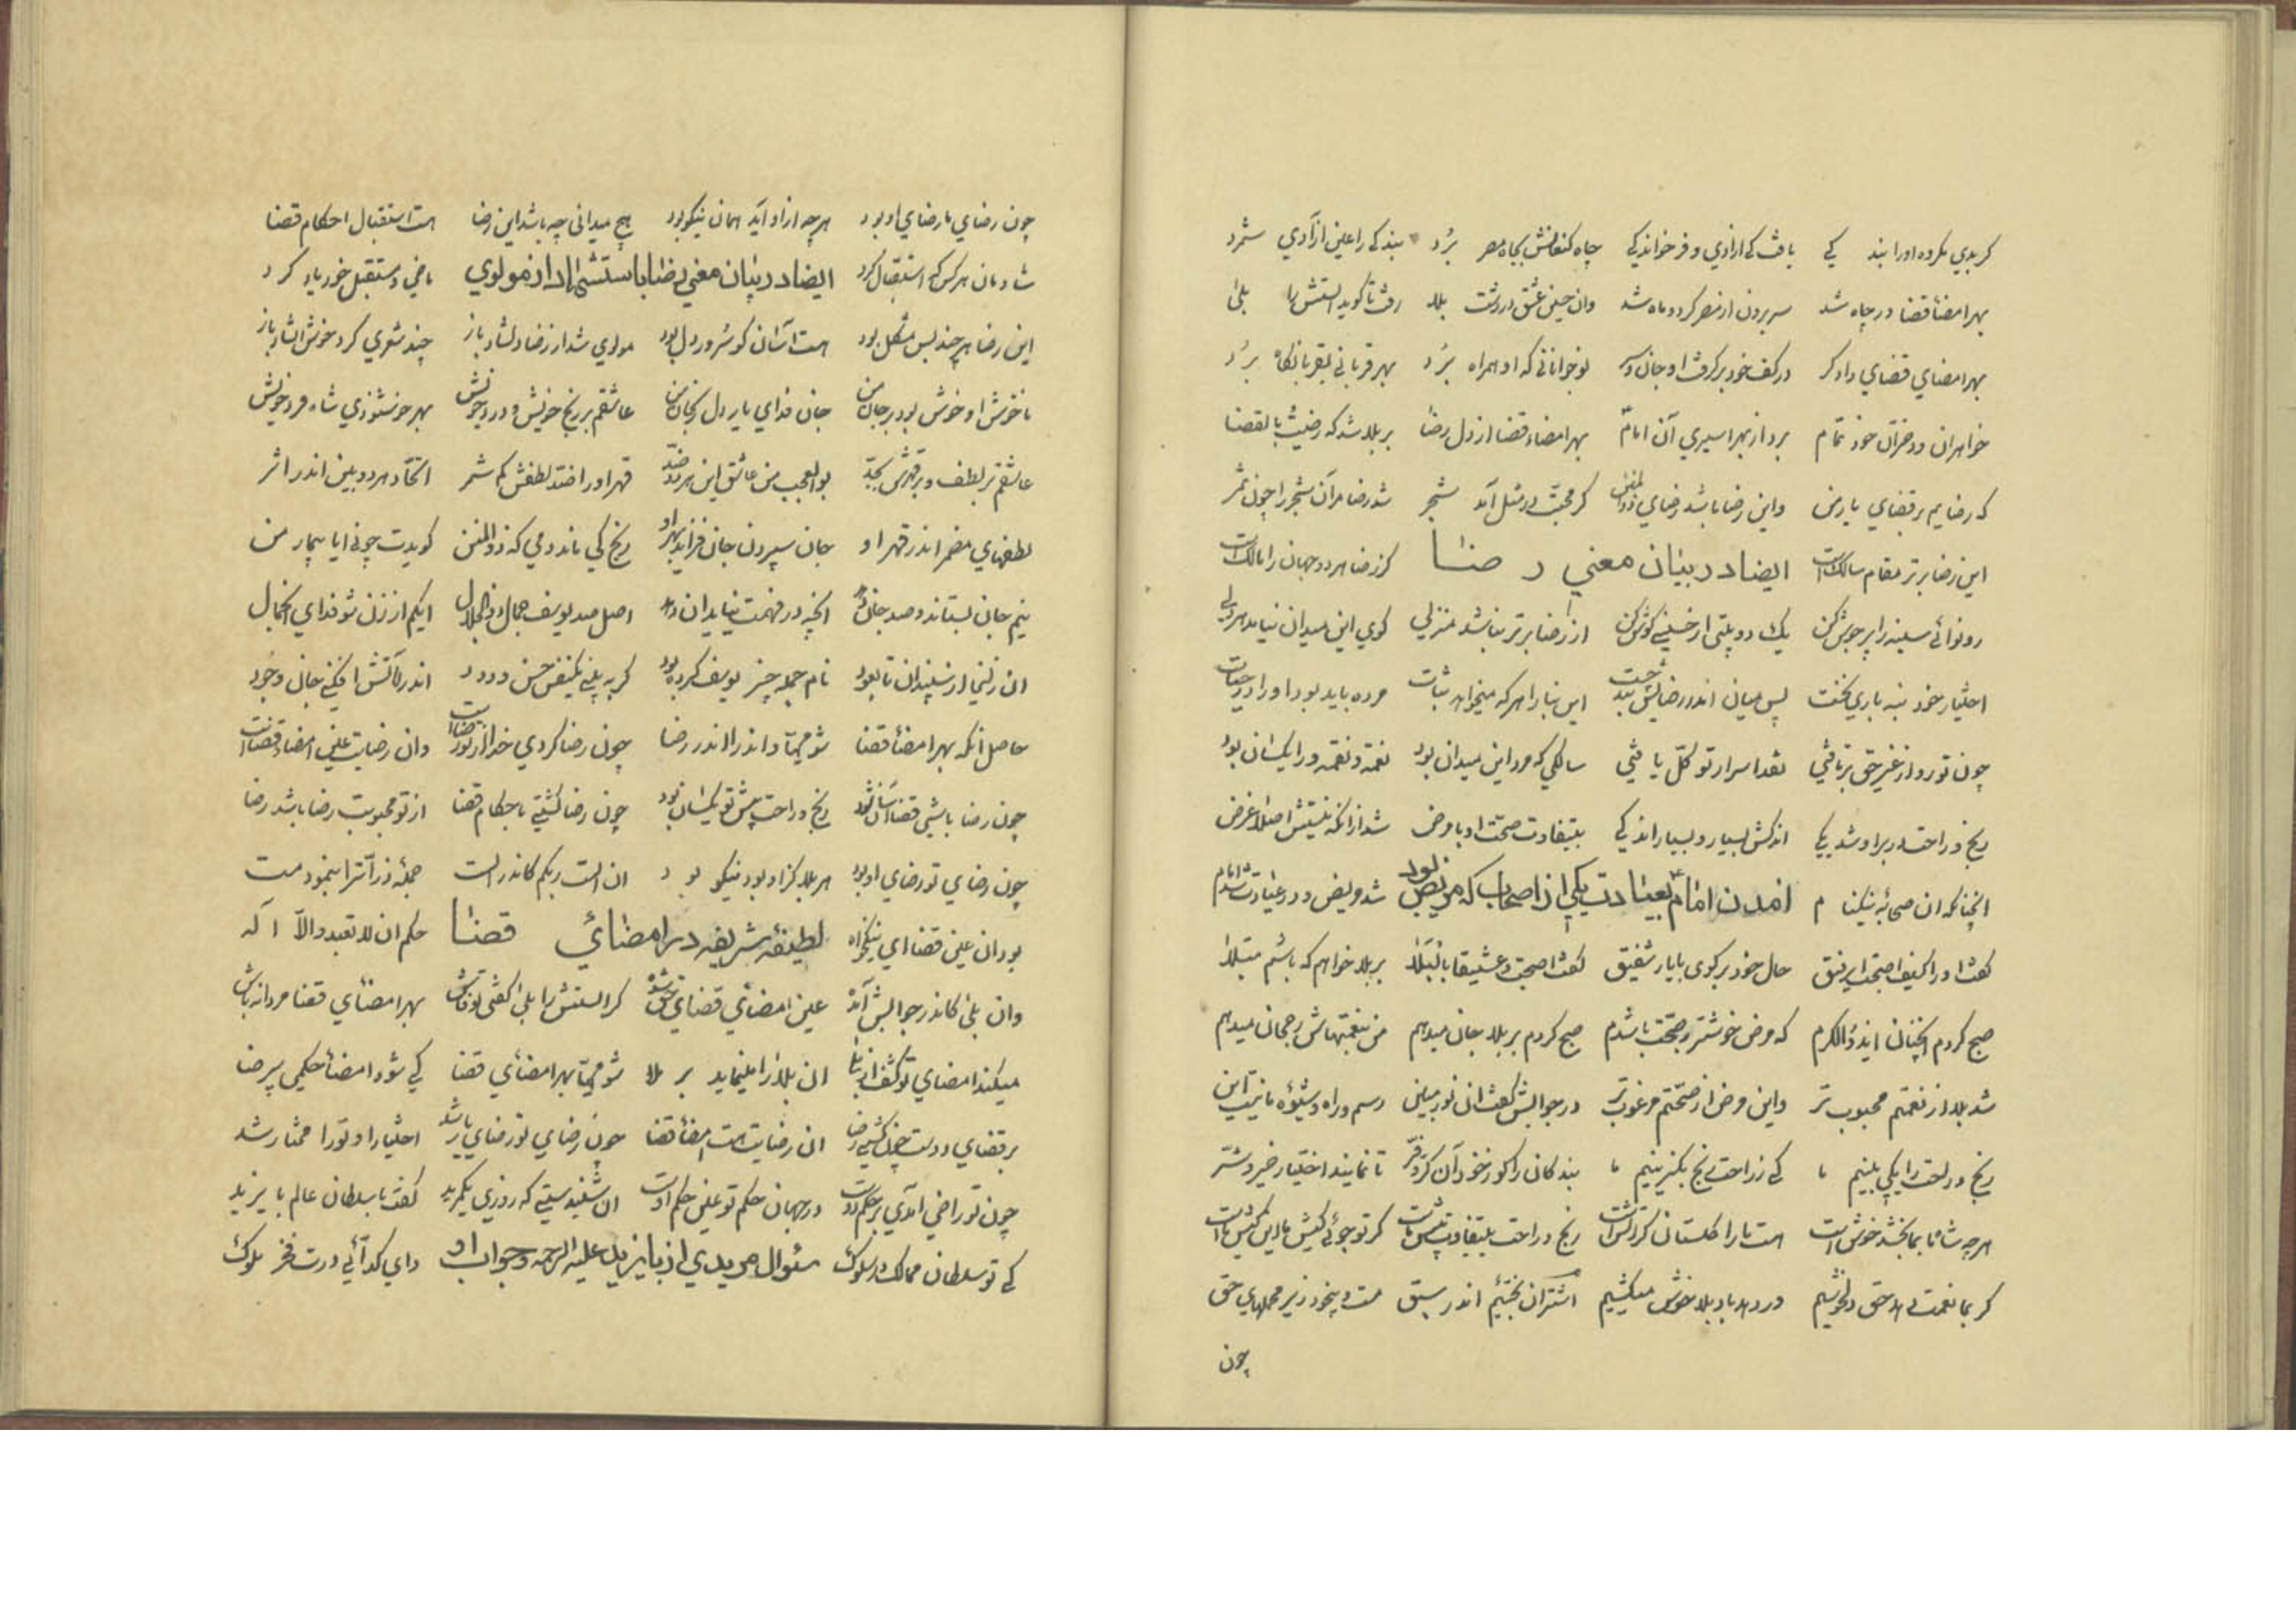 کر بدی مکروه اورا بند کی یافت کی ازادی و فرخواندکی چاه کنعانش بجاه مصر برد بندکی را عین ازادی شمرد
بهر امضأ قضا در چاه شد سر برون از مصر کرد و ماه شد وان حسین عشق در دشت بلا رفت تا کوید الستش را بلی
بهر امضای قضای دادکر در کف خود برکرفت او جان و سر نوخوانانی که او همراه برد بهر قربانی بقربانکاه برد
خواهران و دختران خود تمام برد از بهر اسیری آن امام بهر امضاء قضا از دل رضا بر بلا شد که رضیت بالقضا
که رضایم بر قضای یار من واین رضا باشد رضای ذوالمنن کر محبت در مثل آمد شجر شد رضا مر آن شجر را چون ثمر
این رضا برتر مقام سالک است ایضا در بیان معنی رضا کز رضا هر دو جهان را مالک است
رو نوائی سینه را پر جوش کن یک دو بیتی از حسینی کوش کن از رضا برتر نباشد منزلی کوی این میدان نیابد هر دلی
اختیار خود بنه باری نخست پس میان اندر رضایش بند چست این بنا را هر که میخواهد ثبات مرده باید بود او را در حیات
چون تو رو از غیر حق برتافتی نقد اسرار تو کل یافتی سالکی که مرد این میدان بود نعمه و نقمه ورا یکسان بود
رنج و راحت در بر او شد یکی اندکش بسیار و بسیار اندکی بتیفاوت صحت او با مرض شد ازانکه نیستش اصلا غرض
انچنانکه ان صحابه نیکنام امدن امام بعیادت یکی از اصحاب که مریض بود شد مریض و در عیادت شد امام
کفت او را کیف اصبحت ایرفیق حال خود برکوی با یار شفیق کفت اصبحت و عشیقا بالبلا بر بلا خواهم که باشم مبتلا
صبح کردم انچنان ایذوالکرم که مرض خوشتر ز صحت باشدم صبح کردم بر بلا جان میدهم من بنغمتهاش رجحان میدهم
شد بلا از نعمتم محبوب تر واین مرض از صحتم مرغوب تر در جوابش کفت ان نور مبین رسم و راه و شیوه ما نیست این
رنج و راحت را یکی بینیم ما کی ز راحت رنج بکزینیم ما بندکان را کو ز خود آن کر و فر تا نمایند اختیار خیر و شر
هر چه شاه ما بما بخشد خوش است هست ما را کلستان کر اتش است رنج و راحت بتیفاوت پیش ماست کر تو جوئی کیش ما این کیش ماست
کر بما نعمت دهد حق دلخوشیم ور دهد بار بلا خوش میکشیم اشتران بختیم اندر سبق مست و بیخود زیر محملهای حق
چون
چون رضای ما رضای او بود هر چه از او آید همان نیکو بود هیچ میدانی چه باشد این رضا هست استقبال احکام قضا
شادمان هر کس که استقبال کرد ایضا در بیان معنی رضا با استشهاد از مولوی ماضی و مستقبل خود یاد کرد
این رضا هر چند بس مشکل بود هست آسان کو سرور دل بود مولوی شد از رضا دلشاد باز چند شعری کرد خوش انشاد باز
ناخوش او خوش بود بر جان من جان فدای یار دل رنجان من عاشقم بر رنج خویش و درد خویش بهر خوشنودی شاه فرد خویش
عاشقم بر لطف و بر قهرش بجد بوالعجب من عاشق این هر دو ضد قهر او را ضد لطفش کم شمر اتحاد هر دو بین اندر اثر
لطفهای مضمر اندر قهر او جان سپردن جان فزاید بهر او رنج کی ماند دمی که ذوالمنن کویدت چونی ایا بیمار من
نیم جان بستاند و صد جان دهد انچه در فهمت نیاید ان دهد اصل صد یوسف جمال ذوالجلال ایکم از زن شو فدای انجمال
ان زلیخا از سپندان تا بعود نام جمله چیز یوسف کرده بود
حاصل انکه بهر امضأ قضا شو مهیا و اندرا اندر رضا چون رضا کردی خدا از تو رضاست وان رضایت عین امضاء قضاست
چون رضا باشی قضا آسان شود رنج و راحت پیش تو یکسان بود چون رضا کشتی باحکام قضا از تو محبوبت رضا باشد رضا
چون رضای تو رضای او بود هر بلا کز او بود نیکو بود ان الست ربکم کاندر الست جمله ذرات را بنمود مست
بود ان عین قضا ای نیکخواه لطیفه شریفه در امضائ قضا حکم ان لا تعبدوا الا اله
وان بلی کاندر جوابش آمده عین امضای قضای حق شده کر الستش را بلی کفتی تو فاش بهر امضأی قضا مردانه باش
میکند امضای تو کشف از بلا ان بلا را مینماید بر ملا شو مهیا بهر امضأی قضا کی شود امضأ حکمی بیرضا
بر قضای دوست چون کشتی رضا ان رضایت هست امضأ قضا چون رضای تو رضای یار شد اختیار او تو را مختار شد
چون تو راضی آمدی بر حکم دوست در جهان حکم تو عین حکم اوست ان شنیدستی که روزی یکمرید کفت با سلطان عالم بایزید
کی تو سلطان ممالک در سلوک سئوال مریدی از بایزید علیه الرحمه و جواب او وای کدائی درت فخر ملوک